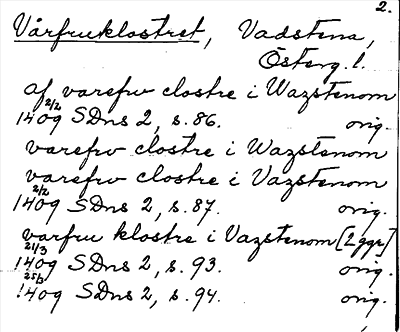 2.
Vårfruklostret, Vadstena,
Österg. l.
af varefrw clostre i Wazstenom
1409 2/2 SDns 2, s. 86. orig.
varefrw clostre i Wazstenom
varefrw clostre i Vazstenom
1409 2/2 SDns 2, s. 87. orig.
varfru klostre i Vazstenom [2 ggr]
1409 21/3 SDns 2, s. 93. orig.
1409 25/3 SDns 2, s. 94. orig.